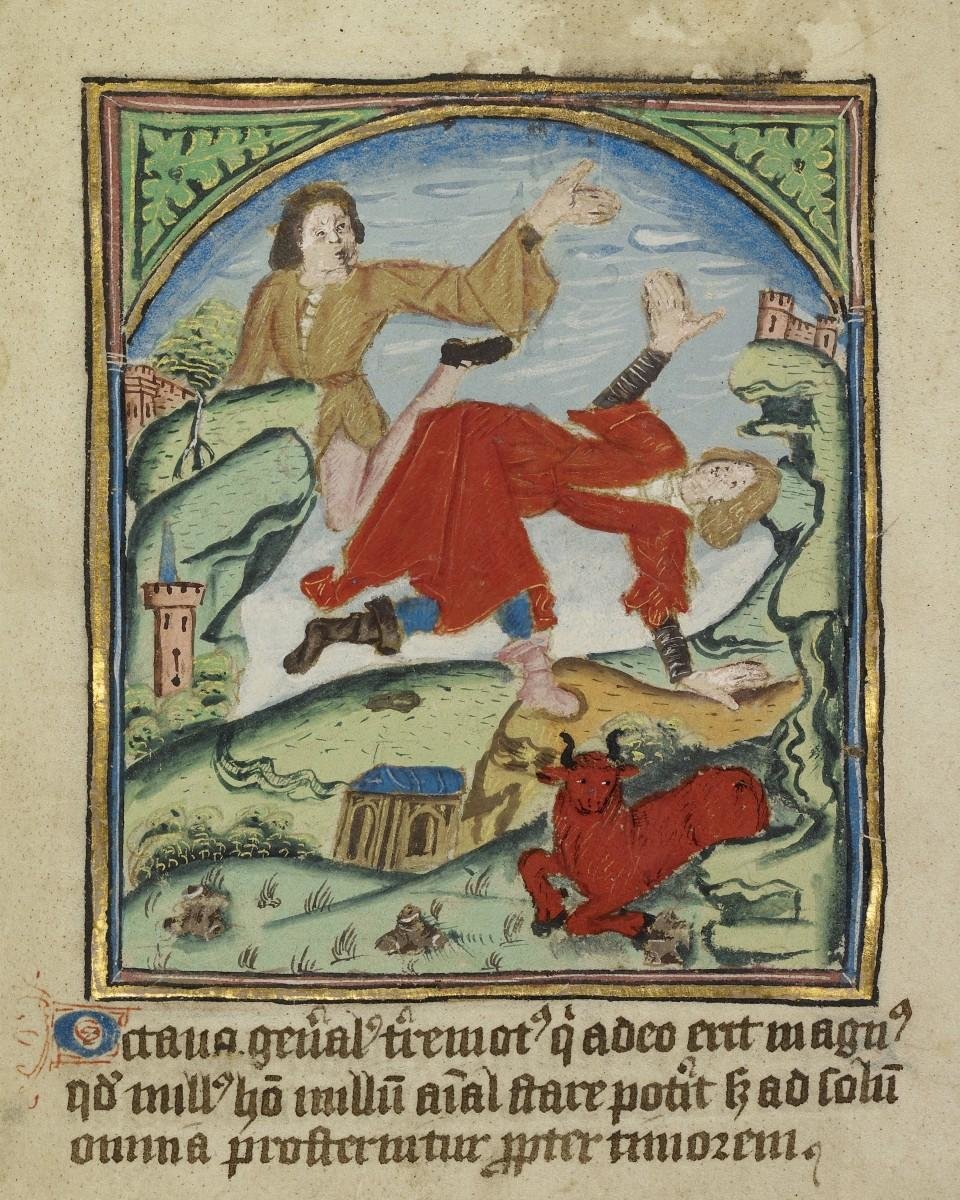 Octaua. gen̄alꝰ t̄remotꝰ q̇ adeo erit magnꝰ
qđ nullꝰ hō nullū aīal stare pot̄it sꝫ ad solū
omnia prosternitur ꝓpter timorem.